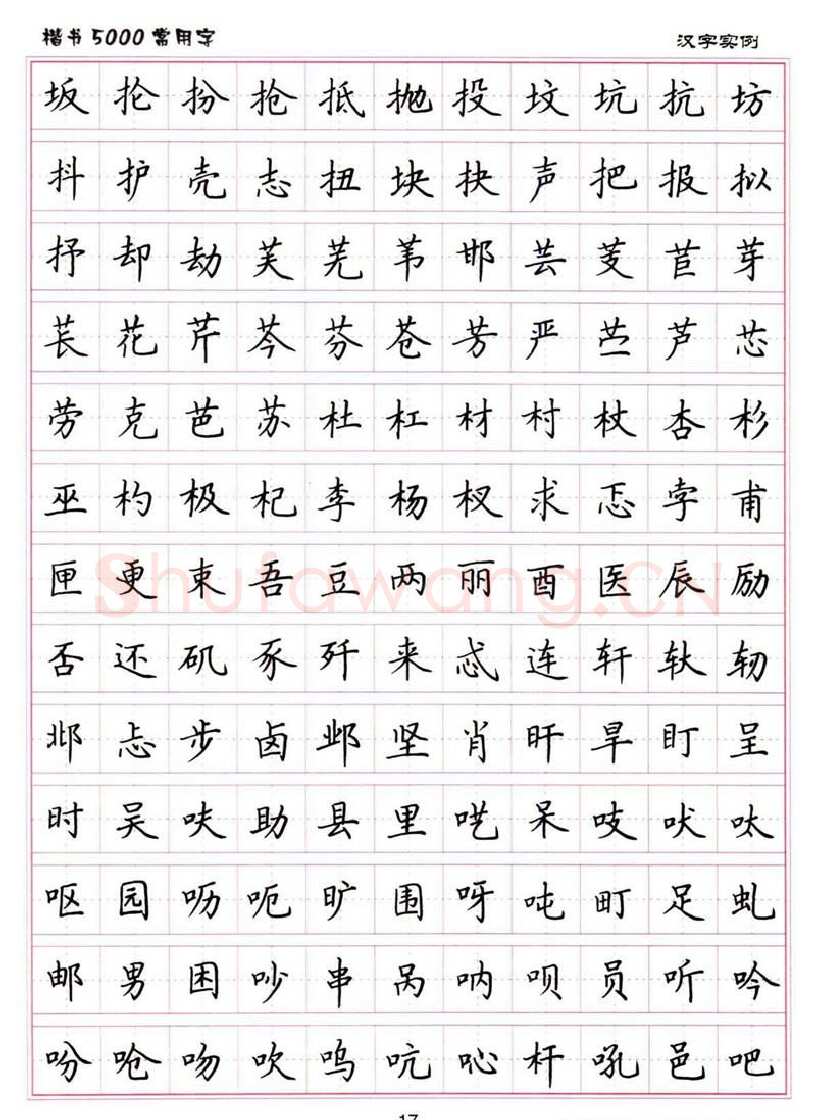 楷书5000常用字
汉字实例
坂抡扮抢抵抛投坟坑抗坊
抖护壳志扭块抉声把报拟
抒却劫芙芜苇邯芸芰苣芽
苌花芹芩芬苍芳严苎芦芯
劳克芭苏杜杠材村杖杏杉
巫杓极杞李杨杈求忑孛甫
匣更束吾豆两丽酉医辰励
否还矶豕歼来忒连轩轪轫
邶忐步卤邺坚肖旰旱盯呈
时吴呋助县里呓呆吱吠呔
呕园呖呃旷围呀吨町足虬
邮男困吵串呙呐呗员听吟
吩呛吻吹呜吭吣杆吼邑吧
Shufawang.CN
17